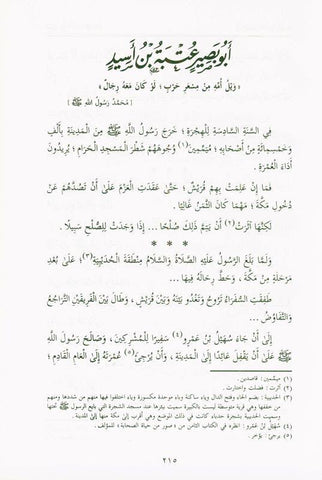 أَبُو بَصِيرٍ عُتْبَةُ بْنُ أَسِيدٍ
« وَيْلُ أُمِّهِ مِنْ مِسْعَرِ حَرْبٍ ؛ لَوْ كَانَ مَعَهُ رِجَالٌ »
[ مُحَمَّدٌ رَسُولُ اللَّهِ ﷺ ]
فِي السَّنَةِ السَّادِسَةِ لِلْهِجْرَةِ ؛ خَرَجَ رَسُولُ اللَّهِ ﷺ مِنَ الْمَدِينَةِ بِأَلْفٍ
وَخَمْسِمِائَةٍ مِنْ أَصْحَابِهِ ؛ مُيَمِّمِينَ (١) وُجُوهَهُمْ شَطْرَ الْمَسْجِدِ الْحَرَامِ ؛ يُرِيدُونَ
أَدَاءَ الْعُمْرَةِ .
فَمَا إِنْ عَلِمَتْ بِهِمْ قُرَيْشٌ ؛ حَتَّى عَقَدَتِ الْعَزْمَ عَلَى أَنْ تَصُدَّهُمْ عَنْ
دُخُولِ مَكَّةَ ؛ مَهْمَا كَانَ الثَّمَنُ غَالِيًا .
لَكِنَّهَا آثَرَتْ (٢) أَنْ يَتِمَّ ذَلِكَ صُلْحًا ... إِذَا وَجَدَتْ لِلصُّلْحِ سَبِيلًا .
* * *
وَلَمَّا بَلَغَ الرَّسُولُ عَلَيْهِ الصَّلَاةُ وَالسَّلَامُ مِنْطَقَةَ الْحُدَيْبِيَةِ (٣) ؛ عَلَى بُعْدِ
مَرْحَلَةٍ مِنْ مَكَّةَ ، وَحَطَّ رِحَالَهُ فِيهَا ...
طَفِقَتِ السُّفَرَاءُ تَرُوحُ وَتَغْدُو بَيْنَهُ وَبَيْنَ قُرَيْشٍ ، وَطَالَ بَيْنَ الْفَرِيقَيْنِ التَّرَاجُعُ
وَالتَّفَاوُضُ ...
إِلَى أَنْ جَاءَ سُهَيْلُ بْنُ عَمْرٍو (٤) سَفِيرًا لِلْمُشْرِكِينَ ، وَصَالَحَ رَسُولَ اللَّهِ
ﷺ عَلَى أَنْ يَقْفِلَ عَائِدًا إِلَى الْمَدِينَةِ ، وَأَنْ يُرْجِئَ (٥) عُمْرَتَهُ إِلَى الْعَامِ الْقَادِمِ ؛
(١) ميمّمين : قاصدين .
(٢) آثرت : فضلت واختارت .
(٣) الحديبية : بضم الحاء وفتح الدال وياء ساكنة وباء موحدة مكسورة وياء اختلفوا فيها فمنهم من شددها ومنهم
من خففها وهي قرية متوسطة ليست بالكبيرة سميت ببئرها عند مسجد الشجرة التي بايع الرسول ﷺ تحتها
وسميت الحديبية بشجرة حدباء كانت في ذلك الموضع وهي أقرب إلى مكة منها إلى المدينة .
(٤) سُهَيْل بن عَمْرو : انظره في الكتاب الثامن من « صور من حياة الصحابة » للمؤلف .
(٥) يرجئ : يؤخر .
٢١٥